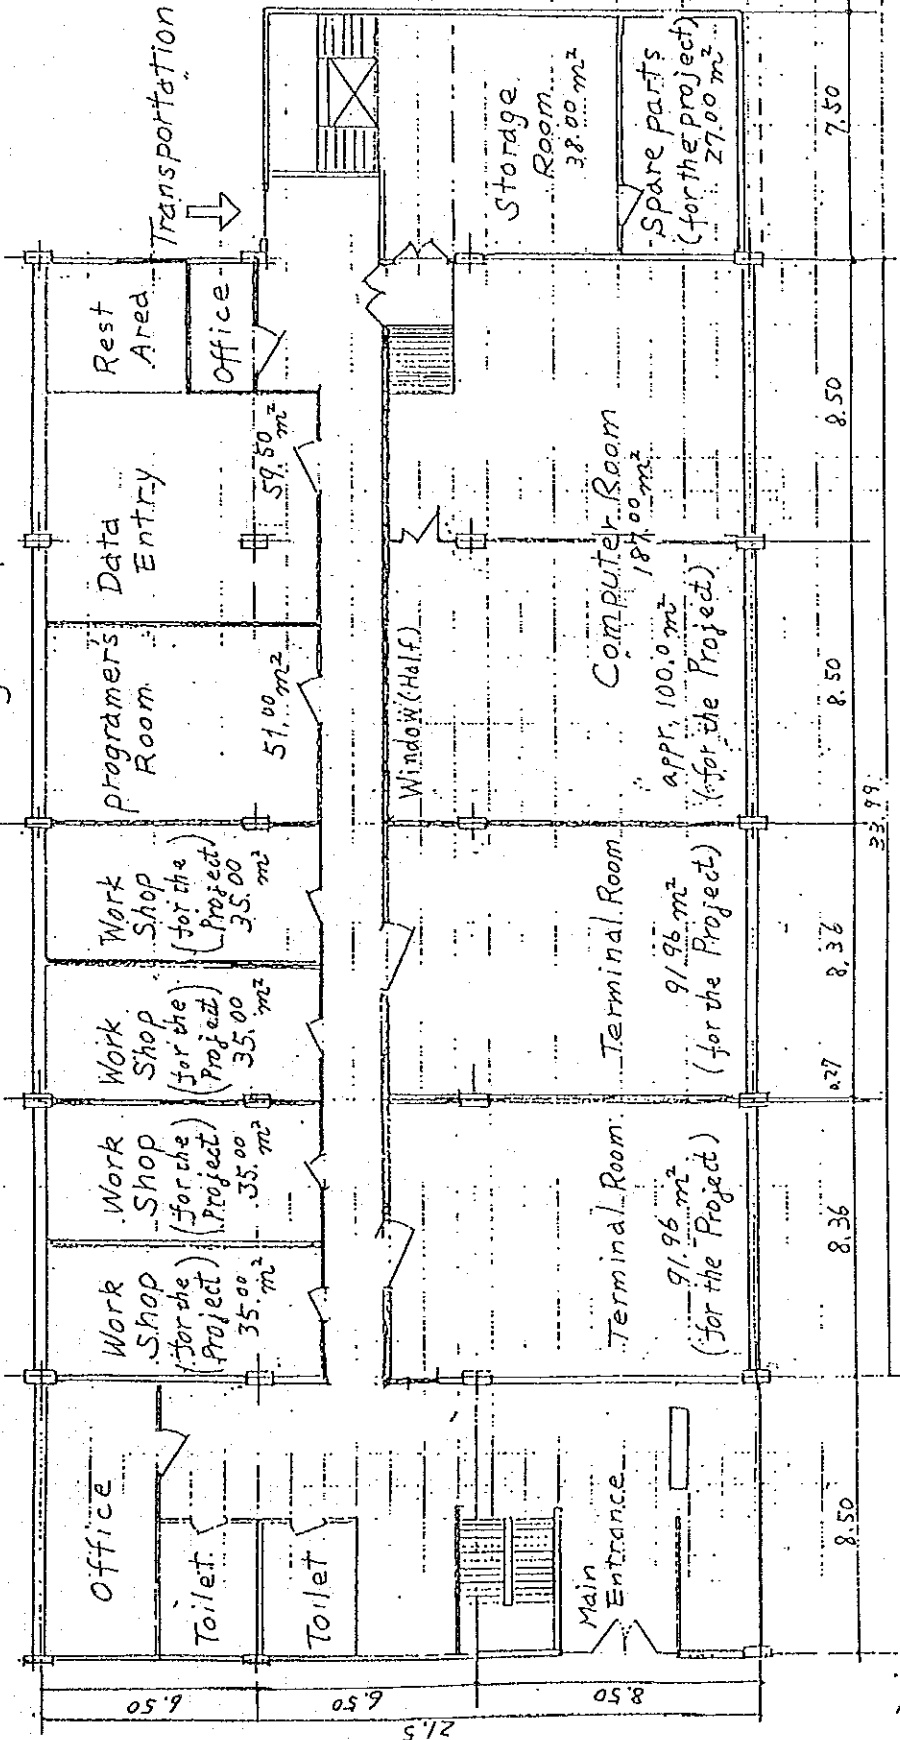 Transportation
Office
Toilet
Toilet
Work
Shop
(for the
Project)
35.00
m²
Work
Shop
(for the
Project)
35.00
m²
Work
Shop
(for the
Project)
35.00
m²
Work
Shop
(for the
Project)
35.00
m²
programer's
Room
51.00 m²
Data
Entry
59.50
m²
Rest
Area
Office
Window (Half)
Main
Entrance
Terminal Room
91.96 m²
(for the Project)
Terminal Room
91.96 m²
(for the Project)
Computer Room
187.00 m²
appr, 100.0 m²
(for the Project)
Storage
Room
38.00 m²
Spare parts
(for the project)
27.00 m²
6.50
6.50
8.50
21.5
8.50
8.36
0.27
8.36
8.50
8.50
7.50
33.99